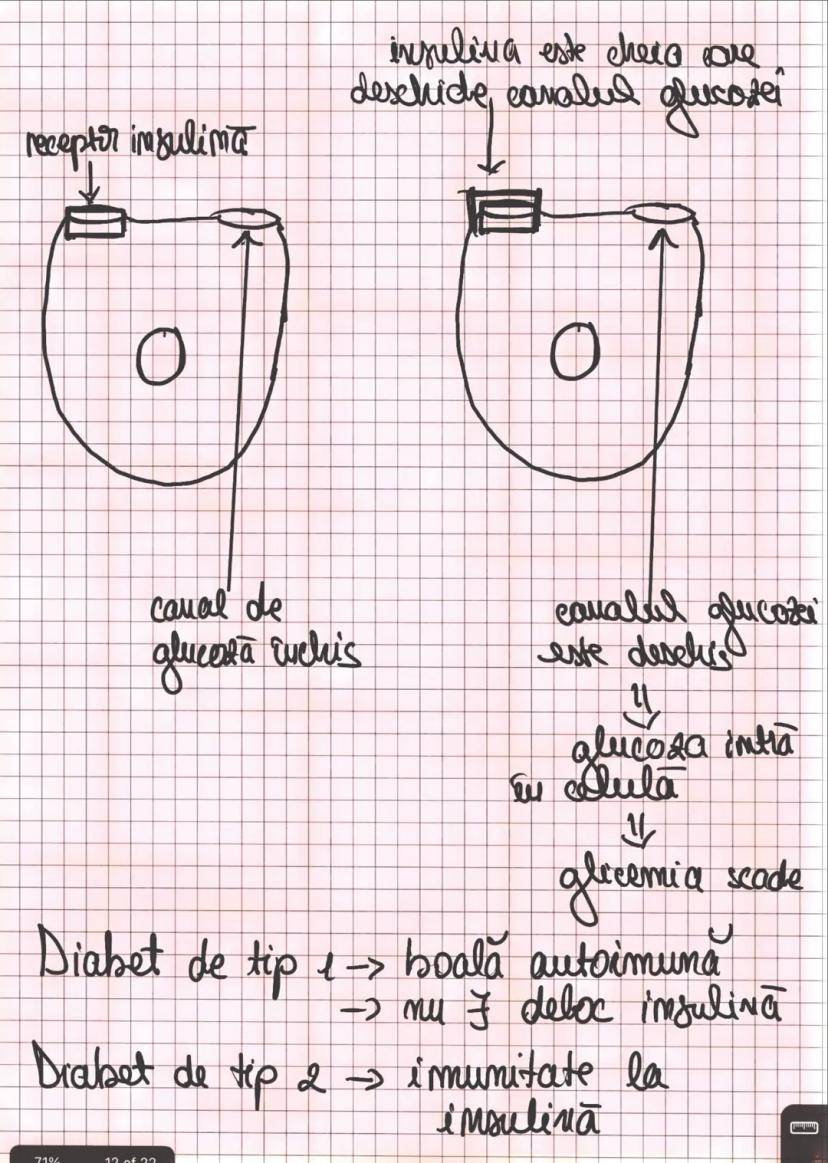 insulina este cheia care
deschide canalul glucozei
receptor insulină
canal de
glucoză închis
canalul glucozei
este deschis
⇓
glucoza intră
în celulă
⇓
glicemia scade
Diabet de tip 1 -> boală autoimună
-> nu Ǝ deloc insulină
Diabet de tip 2 -> imunitate la
insulină
71% 12 of 22